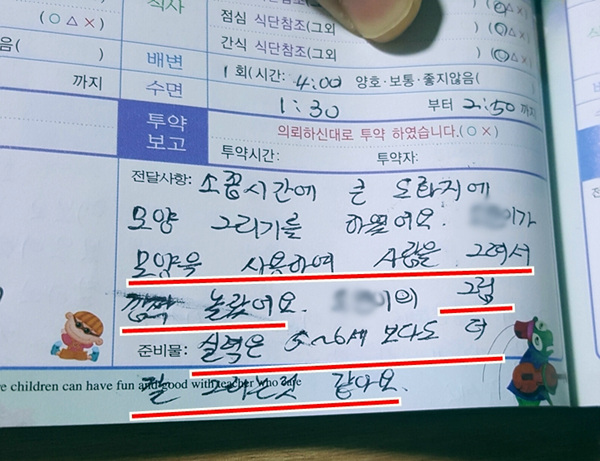 식사
(○△×)
점심 식단참조(그외 ) (○△×)
간식 식단참조(그외 ) (○△×)
배변
1회(시간: 4:00 양호·보통·좋지않음(
까지
수면
1:30 부터 2:50 까지
투약
보고
의뢰하신대로 투약 하였습니다.(○×)
투약시간: 투약자:
전달사항: 소꿉시간에 큰 도화지에
모양 그리기를 하였어요. 이가
모양을 사용하여 사람을 그려서
깜짝 놀랐어요. 이의 그림
준비물: 실력은 5~6세 보다도 더
잘 그리는것 같아요.
re children can have fun and good with teacher who care